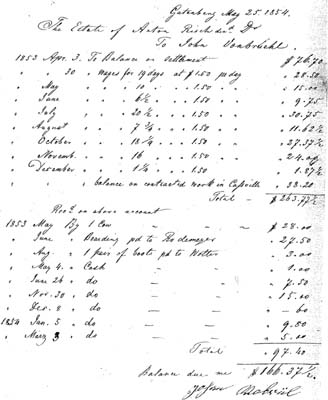 Gutenberg May 25. 1854.
The Estate of Anton Dr
To John
1853 Apr. 3. To Balance on settlement $ 76.70
" " 30 " wages for 19 days at $1.50 pr day " 28.50
" May " 10 " " 1.50 " " 15.00
" June " 6½ " " 1.50 " " 9.75
" July " 20½ " " 1.50 " " 30.75
" August " 7¾ " " 1.50 " " 11.62½
" October " 18¼ " " 1.50 " " 27.37½
" Novemb. " 16 " " 1.50 " " 24.00
" December " 1¼ " " 1.50 " " 1.87½
" " " balance on contracted work in Cassville " 38.20
Total - $ 263.77½
Rec'd on above account
1853 May By 1 Cow - " - $ 28.00
" June " pd to " 27.50
" Aug. " 1 pair of boots pd to " 3.00
" May 4. " Cash - " 1.00
" June 26 " do - " 7.50
" Nov. 30 " do - " 15.00
" Dec. 8 " do - " - 60
1854 Jan. 5 " do - " 9.50
" 3 " do - " 5.00
Total " 97.40
Balance due me $ 166.37½